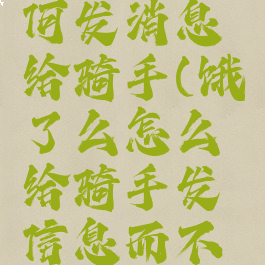 阿发消息
给骑手(饿
了么怎么
给骑手发
信息而不